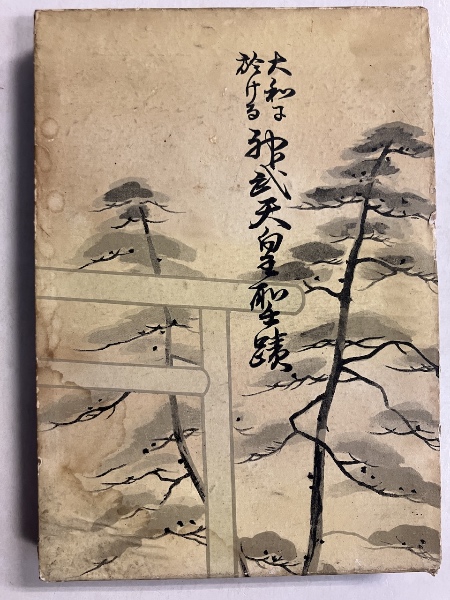 大和に
於ける
神武天皇聖蹟